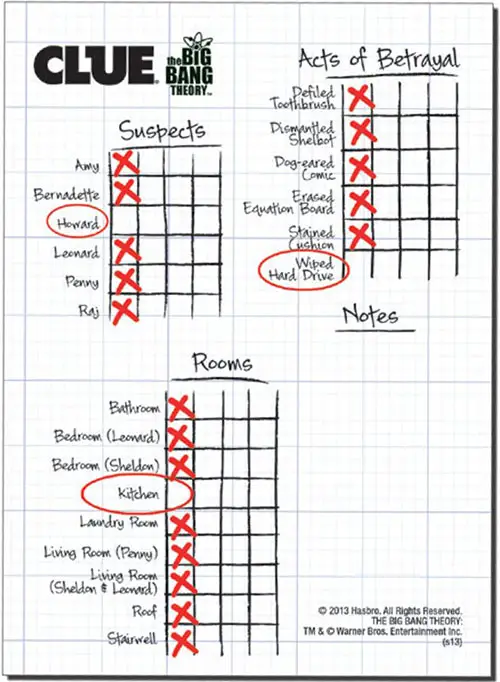 CLUE
the BIG
BANG
THEORY™
Suspects
Amy
Bernadette
Howard
Leonard
Penny
Raj
Acts of Betrayal
Defiled
Toothbrush
Dismantled
Shelbot
Dog-eared
Comic
Erased
Equation Board
Stained
Cushion
Wiped
Hard Drive
Notes
Rooms
Bathroom
Bedroom (Leonard)
Bedroom (Sheldon)
Kitchen
Laundry Room
Living Room (Penny)
Living Room
(Sheldon & Leonard)
Roof
Stairwell
© 2013 Hasbro. All Rights Reserved.
THE BIG BANG THEORY:
TM & © Warner Bros. Entertainment Inc.
(s13)